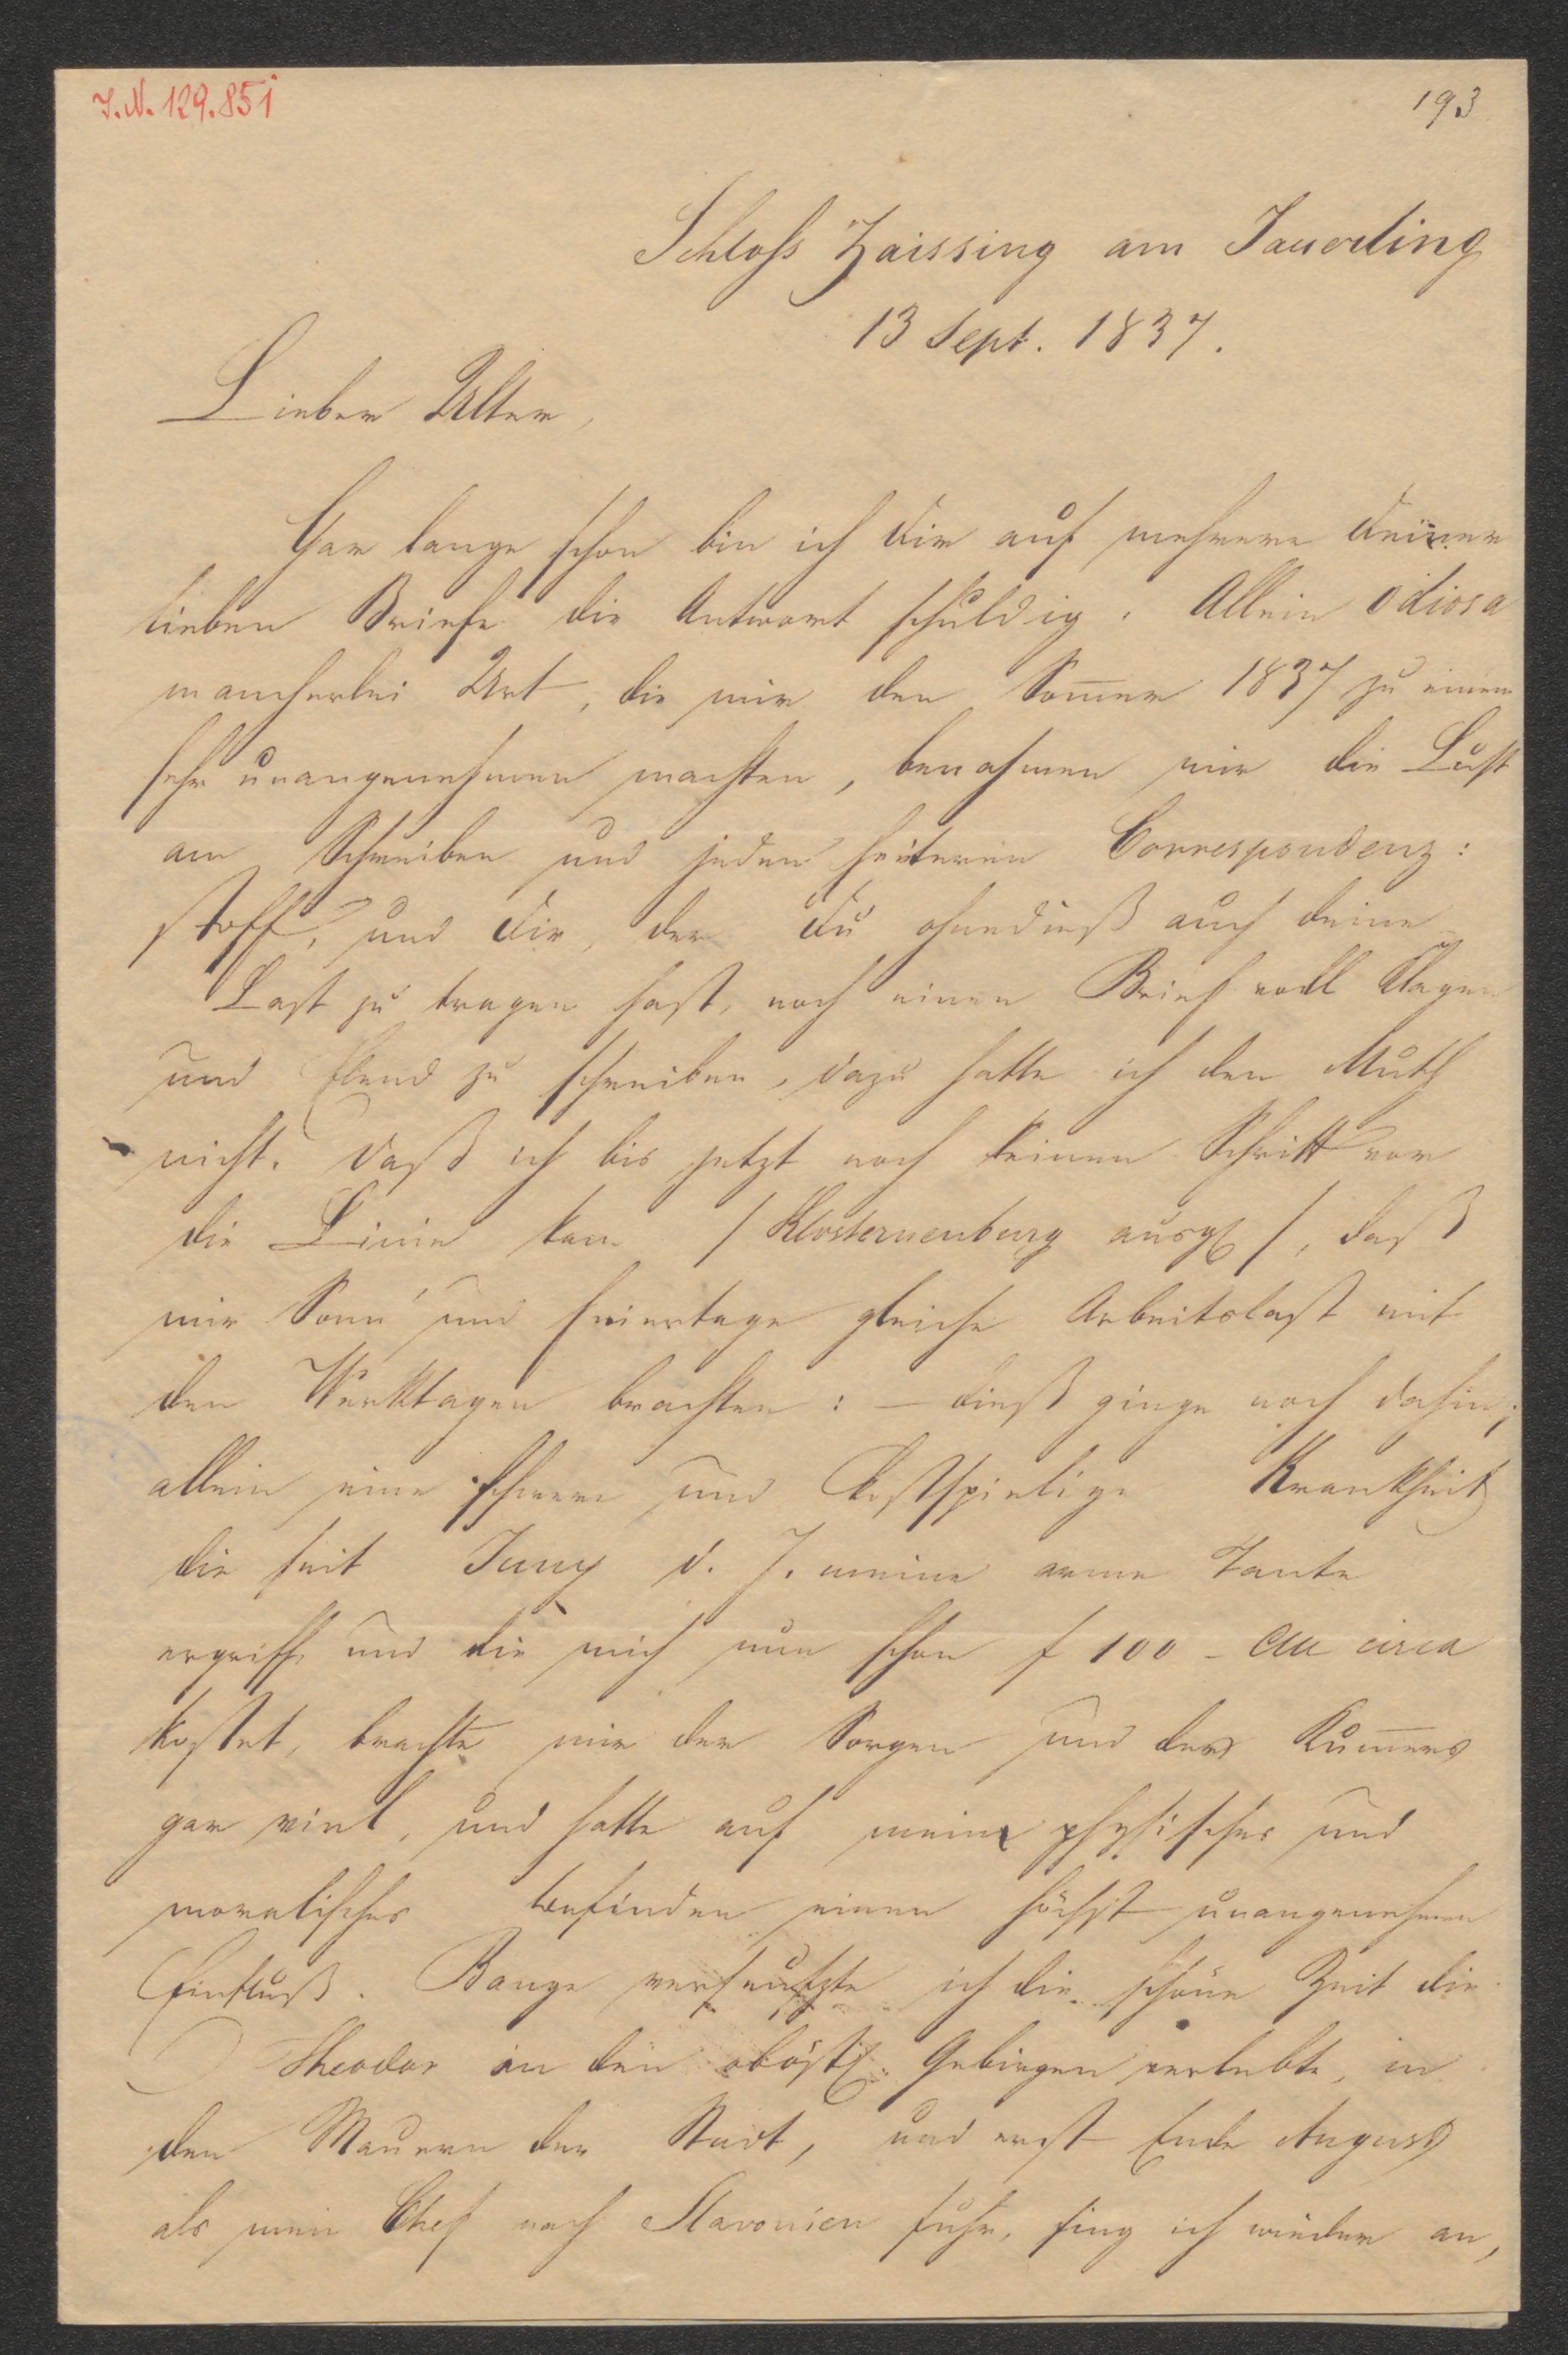 I.N. 129.851
193
Schloß Zaissing am Jauerling
13 Sept. 1837.
Lieber Alter,
Gar lange schon bin ich dir auf mehrere deiner
lieben Briefe die Antwort schuldig. Allein odiosa
mancherlei Art, die mir den Som̅er 1837 zu einem
sehr unangenehmen machten, benahmen mir die Lust
am Schreiben und jeden heiteren Correspondenz:
stoff, und dir, der du ohnedieß auch deine
Last zu tragen hast, noch einen Brief voll Klagen
und Elend zu schreiben, dazu hatte ich den Muth
nicht. Daß ich bis jetzt noch keinen Schritt vor
die Linie kam / Klosterneuburg ausg /, daß
mir Sonn' und Feiertage gleiche Arbeitslast mit
den Werktagen brachten: – dieß ginge noch dahin;
allein eine schwere und kostspielige Krankheit
die seit Juny d. J. meine arme Tante
ergriff und die mich nun schon f 100 – CM circa
kostet, brachte mir der Sorgen und des Kum̅ers
gar viel, und hatte auf mein physisches und
moralisches Befinden einen höchst unangenehmen
Einfluß. Bange verseufzte ich die schöne Zeit die
Theodor in den oböst. Gebirgen verlebte, in
den Mauern der Stadt, und erst Ende August
als mein Chef nach Slavonien fuhr, fing ich wieder an,